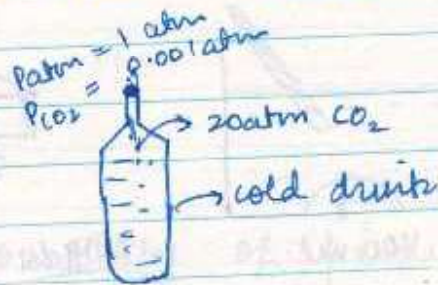 Patm = 1 atm
PCO2 = 0.001 atm
20atm CO2
cold drink